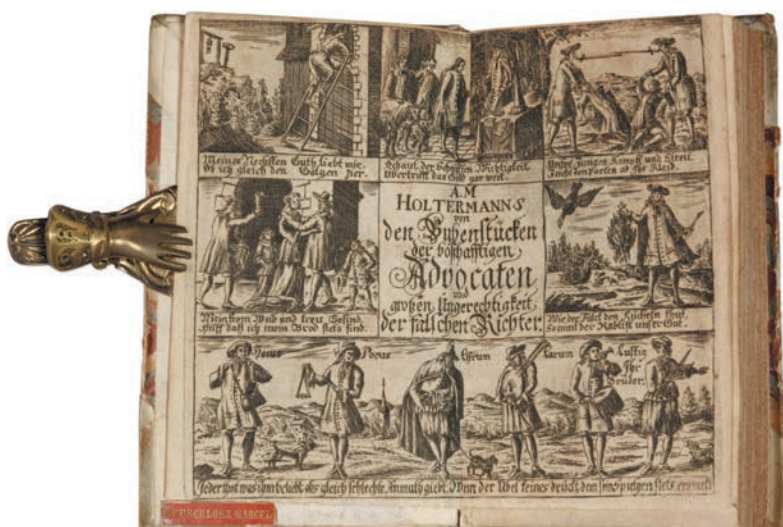 Meines Nechsten Guth liebt mir.
Ob ich gleich den Galgen
Schaut, der Schrifften Wichtigkeit
Übertrifft das Gold gar weit.
Unsre Zungen Kampff und Streit
den Parten ab Ihr Kleid.
A.M
HOLTERMANNS
von
den Bubenstücken
der boßhafftigen
Advocaten
und
großen Ungerechtigkeit
der falschen Richter.
Mein from Weib und treu Gesind,
Hilfft daß ich mein Brod stets find.
Wie der Falck den Kücheln thut,
So nimt der Rablist unser Gut.
Hocus
Pocus
Larum
Lustig
Ihr
Brüder.
Jeder thut was ihm beliebt, ob's gleich schlechte Anmuth giebt. Wenn der Adel seines drückt, dem sein
MARCEL